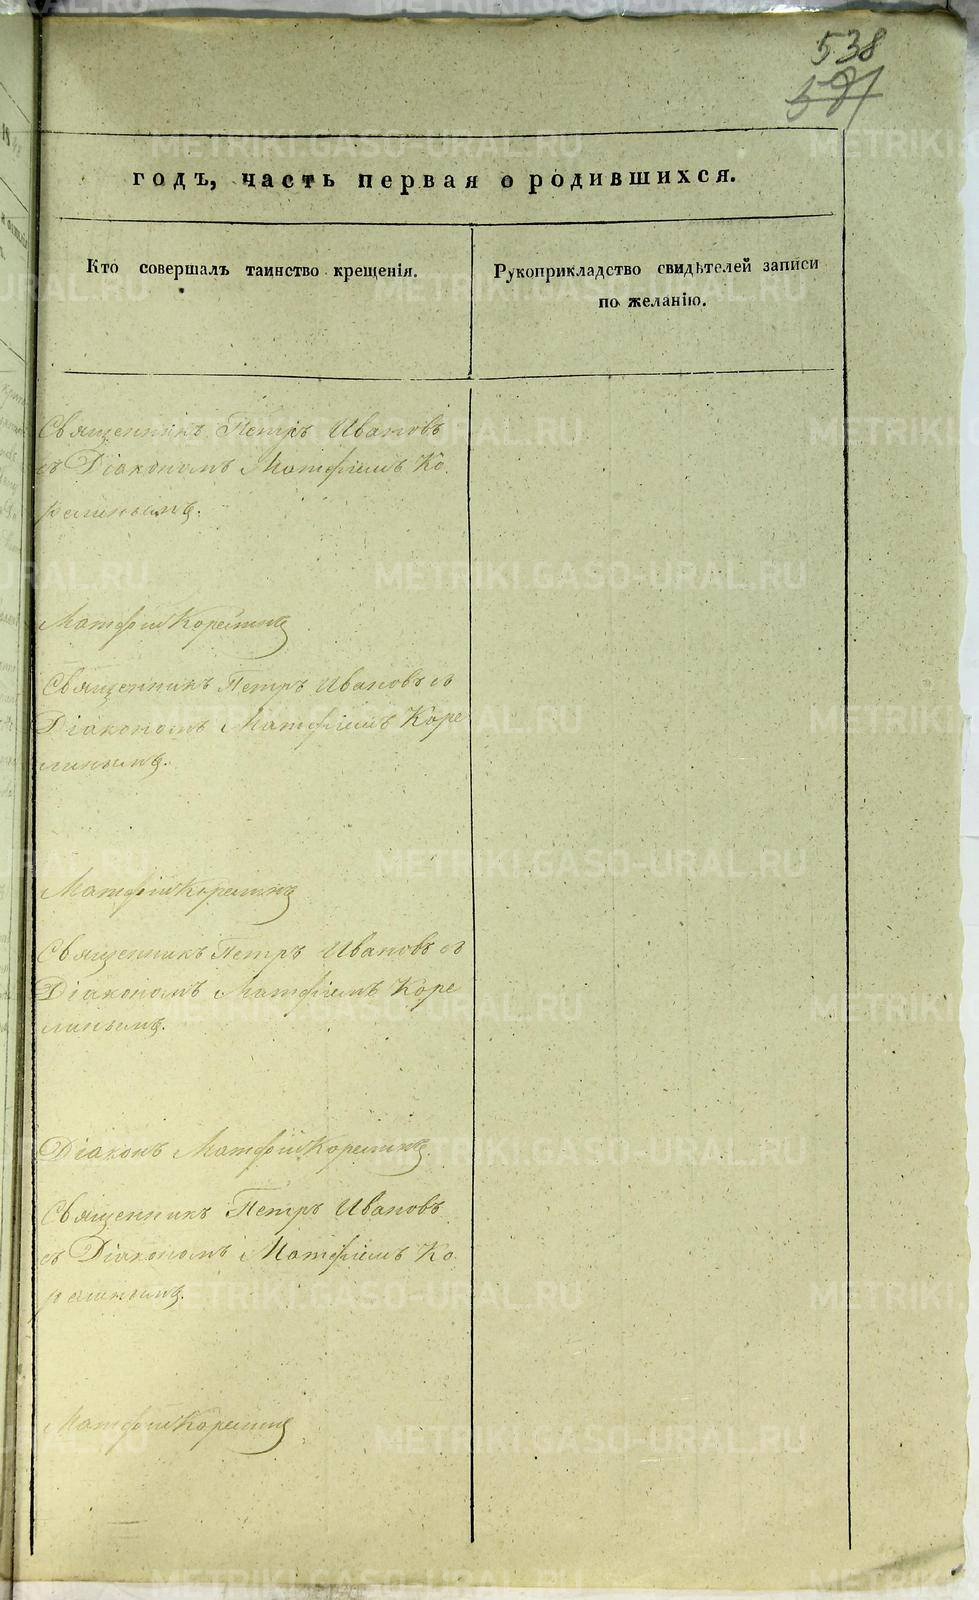 538
581
годъ, часть первая о родившихся.
Кто совершалъ таинство крещенія.
Рукоприкладство свидѣтелей записи
по желанію.
Священникъ Петръ Ивановъ
съ Діакономъ Матфіемъ Ко-
релинымъ.
Матфій Корелинъ
Священникъ Петръ Ивановъ съ
Діакономъ Матфіемъ Коре
линымъ.
Матфій Корелинъ
Священникъ Петръ Ивановъ съ
Діакономъ Матфіемъ Коре
линымъ.
Діаконъ Матфій Корелинъ.
Священникъ Петръ Ивановъ
съ Діакономъ Матфіемъ Ко-
релинымъ.
Матфій Корелинъ
METRIKI.GASO-URAL.RU